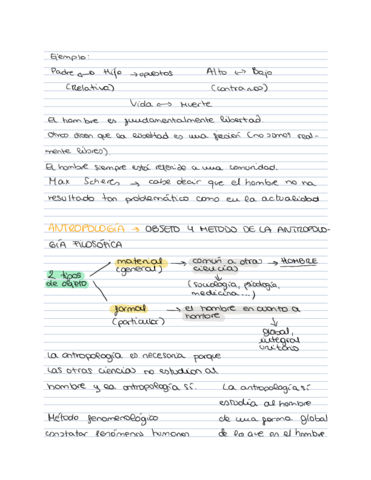 Ejemplo:
Padre ↔ Hijo → opuestos Alto ↔ Bajo
(Relativa) (contrarios)
Vida ↔ Muerte
El hombre es fundamentalmente libertad.
Otros dicen que la libertad es una ficción (no somos real-
mente libres).
El hombre siempre está referido a una comunidad.
Max Scheres → cabe decir que el hombre no ha
resultado tan problemático como en la actualidad
ANTROPOLOGÍA → OBJETO Y METODO DE LA ANTROPOLO-
GÍA FILOSÓFICA
2 tipos de objeto
material (general) → común a otras ciencias → HOMBRE
(sociología, psicología, medicina...)
formal (particular) → el hombre en cuanto a hombre
↓
global, integral unitario
La antropología es necesaria porque
las otras ciencias no estudian al
hombre y la antropología sí. La antropología sí
estudia al hombre
Método fenomenológico de una forma global
constatar fenómenos humanos de lo que es el hombre